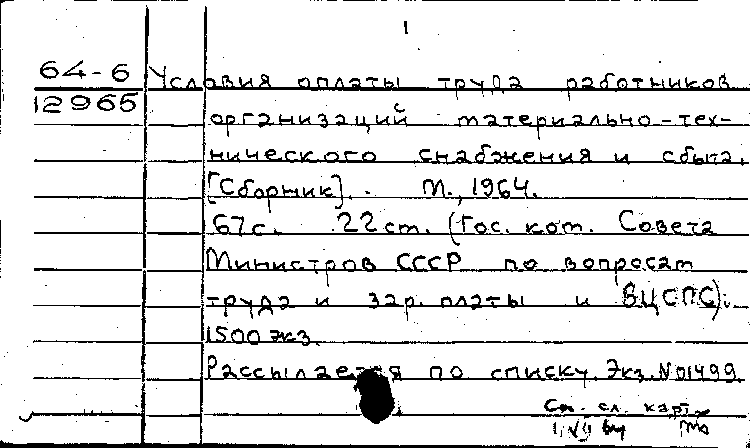 1
64-6 Условия оплаты труда работников
12965 организаций материально-тех-
нического снабжения и сбыта.
[Сборник]. М., 1964.
67с. 22см. (Гос. ком. Совета
Министров СССР по вопросам
труда и зар. платы и ВЦСПС).
1500 экз.
Рассылается по списку. Экз. №01499
См. сл. карт.